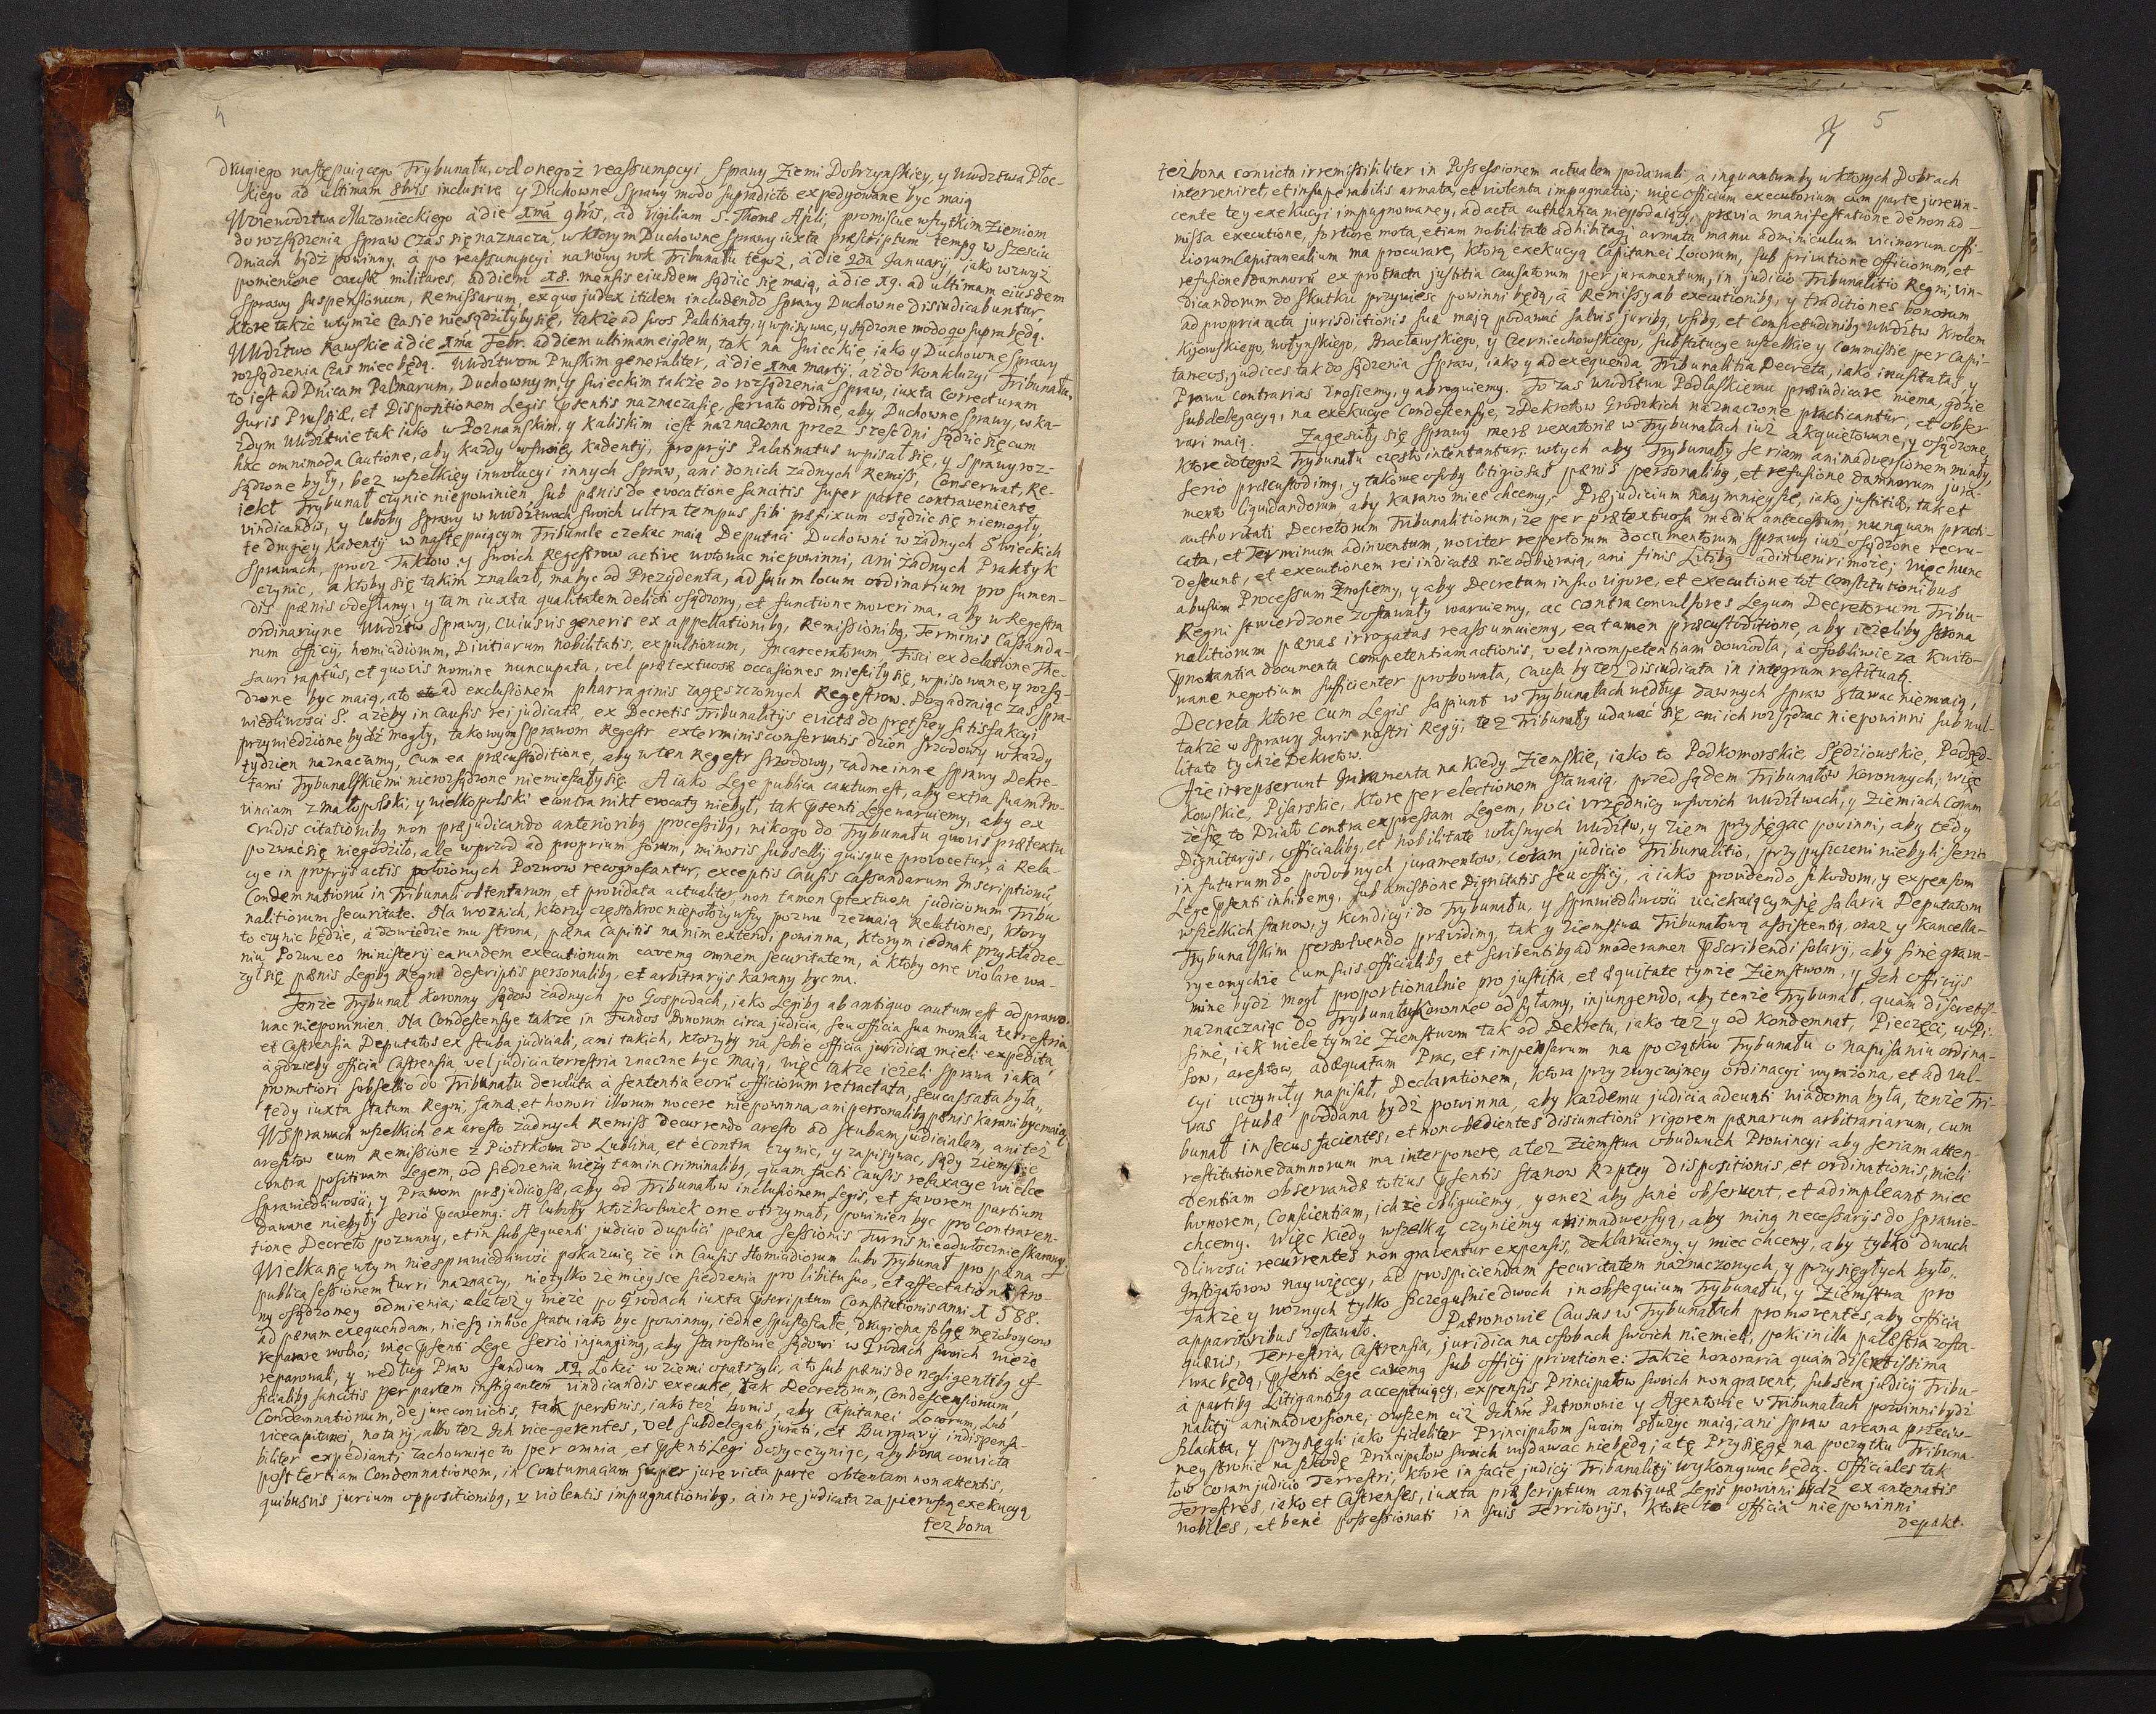 4
drugiego następuiącego Trybunału, od onegoż reassumpcyi Sprawy Ziemi Dobrzynskiey, y Wdztwa Płoc-
kiego ad ultimam 8bris inclusive y Duchowne Sprawy modo supradicto expedyowane byc maią
Woiewodztwa Mazowieckiego à die 1ma 9bris, ad vigiliam S. Thomæ Apli, promiscue wszytkim Ziemiom
do rozsądzenia spraw czas się naznacza, w ktorym Duchowne Sprawy iuxta præscriptum temp9 w szesciu
dniach bydź powinny. à po reassumpcyi na nowy rok Trybunału tegoż, à die 2da January, iako wzwyż
pomienione causæ militares, ad diem 18. mensis eiusdem sądzic się maią, à die 19. ad ultimam eiusdem
Sprawy suspensionum, Remissarum, ex quo judex itidem includendo Sprawy Duchowne disiudicabuntur.
Ktore także wtymże czasie niesądziłyby się, także ad suos Palatinaty, y wpisywac, y sądzone modo quo supra będą.
Wdztwo Rawskie à die 1ma Febr. ad diem ultimam eiqdem, tak na swieckie, iako y Duchowne Sprawy
rozsądzenia czas miec będą. Wdztwom Pruskim generaliter, à die 1ma marty, aż do konkluzyi Tribunału,
to iest ad Dnicam Palmarum, Duchownym, y swieckim także do rozsądzenia Spraw, iuxta Correcturam
Juris Prussiæ, et Dispozitionem Legis psentis naznacza się, seriato ordine, aby Duchowne Sprawy, w ka-
żdym Wdztwie tak iako w Poznańskim, y Kaliskim iest naznaczona przez szesc dni sądzic się cum
hac omnimoda Cautione, aby każdy w swoiey Kadentij, proprijs Palatinatus wpisał się, y Sprawy roz-
sądzone były, bez wszelkiey inwolucyi innych Spraw, ani do nich żadnych Remiss, Conservat, Re-
iekt Trybunał czynic niepowinien, sub pænis de evocatione sancitis super parte contraveniente
vindicandis, y luboby Sprawy w Wdztwach swoich ultra tempus sibi præfixum osądzic się niemogły
te drugiey Kadentij w następuiącym Tribunale czekac maią. Deputaci Duchowni w żadnych Swieckich
Sprawach, procz Taktow, y swoich Regestrow active wotowac niepowinni, ani żadnych Praktyk
czynic, a ktoby się takim znalazł, ma byc od Prezydenta, ad suum locum ordinarium pro sumen-
dis pænis odesłany, y tam iuxta qualitatem delicti osądzony, et functione moveri ma. aby w Regestra
ordinaryine Wdztw Sprawy, cuiusvis generis ex appellationib9, Remissionib9, Terminis Cassanda-
rum officij, homicidiorum, Divitiarum Nobilitatis, expulsionum, Incarceratorum Fisci ex delatione The-
sauri raptûs, et quovis nomine nuncupata, vel prætextuosæ occasiones mieściły się, wpisowane, y rozsą-
dzone byc maią, a to ad exclusionem pharraginis zagęszczonych Regestrow. Dogadzaiąc zas Spra-
wiedliwosci S. ażeby in Causis rei judicatæ, ex Decretis Tribunalitijs evictæ do prętszey satisfakcyi
przywiedzione bydź mogły, takowym Sprawom Regestr ex terminis conservatis dzien srzodowy w każdy
tydzien naznaczamy, cum ea præcustoditione, aby w ten Regestr srzodowy, żadne inne Sprawy Dekre-
tami Trybunalskiemi nierozsądzone niemieszały się. A iako Lege publica cautum est, aby extra suam Pro-
vinciam z małopolski, y wielkopolski e contra nikt evocaty niebył, tak psenti Lege waruiemy, aby ex
crudis citationib9 non præjudicando anteriorib9 processib9, nikogo do Trybunału quovis prætextu
pozwac się niegodziło, ale wprzod ad proprium forum, minoris subsellij quisque provocetur, à Rela-
cye in proprijs actis położonych Pozwow recognoscantur, exceptis Causis Cassandarum Inscriptionũ,
Condemnationũ in Tribunali obtentarum, et providata actualiter, non tamen ptextuosa judiciorum Tribu-
nalitiorum securitate. Na woznich, ktorzy częstokroc niepołożywszy pozwu zeznaią Relationes, ktory
to czynic będzie, à dowiedzie mu strona, pæna Capitis na nim extendi powinna, ktorym iednak przykładze-
niu Pozwu eo ministerij earundem executionum cavem9 omnem securitatem, à ktoby one violare wa-
żył się pænis Legib9 Regni descriptis personalib9, et arbitrarijs karany byc ma.
Tenże Trybunał Koronny Sądow żadnych po Gospodach, iako Legib9 ab antiquo cautum est odprawo-
wac niepowinien. Na Condescensye także in Fundos Bonorum circa judicia, seu officia sua momalia terrestria,
et Castrensia Deputatos ex stuba judiciali, ani takich, ktorzyby na sobie officia juridica mieli expedita,
à gdzieby officia Castrensia, vel judicia terrestria znaczne byc maią, więc także ieżeli Sprawa iaka
promotiori subsellio do Tribunału devoluta à sententia eorũ officiorum retractata, seu cassata była,
tędy iuxta statum Regni, famæ, et honori illorum nocere niepowinna, ani personalib9 pænis karani byc maią.
W sprawach wszelkich ex aresto żadnych Remiss decurrendo aresto ad stubam judicialem, ani też
aresztow cum Remissione z Piotrkowa do Lublina, et è contra czynic, y zapisywac, sądy ziemskie
contra positivam Legem, od siedzenia wieży tam in Criminalib9, quam facti Causis relaxacye wielce
Sprawiedliwosci, y Prawom præjudiciosæ, aby od Tribunałow in elusionem Legis, et favorem partium
dawane niebyły seriò pcavem9: A luboby ktożkolwiek one otrzymał, powinien byc pro contraven-
tione Decreto pozwany, et in subsequenti judicio duplici pæna sessionis Turris nieodwłocznie skarany.
Wielka się w tym niesprawiedliwosc pokazuie, że in Causis Homicidiorum lubo Trybunał pro pæna
publica sessionem turri naznaczy, nietylko że mieysce siedzenia pro libitu suo, et affectatione stro-
ny osądzoney odmienia; ale też y wieże po Grodach iuxta pscriptum Constitutionis anni 1588.
ad pænam exequendam, nie są in hoc statu iako byc powinny, iedne spustoszałe, drugie na folgę mężoboycow
reparare wolno; więc psenti Lege seriò injungim9, aby Starostowie Sądowi w Grodach swoich wieże
reparowali, y według Praw fundum 12. Łokci w ziemi opatrzyli, à to sub pænis de negligentib9 of-
ficialib9 sancitis per partem instigantem vindicandis executię, tak Decretorum, Condescensionum,
Condemnationum, de jure convictis, tam personis, iako też bonis, aby Capitanei Locorum, Lub
vicecapitanei, notarij, albo też Ich vice-gerentes, vel subdelegati jurati, et Burgravij indispensa-
biliter expediant; zachowuiąc to per omnia, et psenti Legi dosyc czyniąc, aby bona convicta
post tertiam Condemnationem, in Contumaciam super jure victa parte obtentam non attentis,
quibusvis jurium oppositionib9, v violentis impugnationib9, à in re judicata za pierwszą exekucyą
też bona
5
też bona convicta irremissibiliter in Possessionem actualem podawali, à inquantum by w ktorych Dobrach
interveniret, et insuperabilis armata, et violenta impugnatio; więc officium executorium cum parte jure vin-
cente tey exekucyi impugnowaney, ad acta authentica niepodaiący, prævia manifestatione de non ad-
missa executione, fortiore mota, etiam nobilitate adhibita, armata manu adminiculum vicinorum offi-
ciorum Capitanealium ma procurare, ktorą exekucyą Capitanei Locorum, sub privatione officiorum, et
refusione damnorũ ex protracta justitia causatorum per juramentum, in judicio Tribunalitio Regni, vin-
dicandorum do skutku przywiesc powinni będą, à Remissy ab executionib9, y traditiones bonorum
ad propria acta jurisdictionis suæ maią podawać salvis jurib9, usib9, et Consuetudinib9 Wdztw Krolem
Kijowskiego, Wołynskiego, Bracławskiego, y Czerniechowskiego, substytucye wszelkie y Commissie per Capi-
taneos, judices tak do sądzenia Spraw, iako y ad exequenda Tribunalitia Decreta, iako inusitatas y
Prawu contrarias znosiemy, y abroguiemy. To zas Wdztwu Podlaskiemu præiudicare niema, gdzie
subdelegacyą, na exekucye Condescensye, z Dekretow Grodzkich naznaczone practicantur, et obser-
vari maią. Zagęsciły się Sprawy meræ vexatoriæ w Trybunałach iuż akquietowane, y osądzone,
ktore do tegoż Trybunału często intentantur; w tych aby Trybunały seriam animadversionem miały,
serio præcustodim9, y takowe osoby litigiosas pænis personalib9, et refusione damnorum jura-
mento liquidandorum aby karano miec chcemy. Præjudicium naymnieysze, iako justitiæ, tak et
authoritati Decretorum Tribunalitiorum, że per prætextuosa media antecessum, nunquam practi-
cata, et terminum adinventum, noviter repertorum documentorum Sprawy iuż osądzone recru-
descunt, et executionem rei indicatæ nieodbieraią, ani finis Litib9 adinveniri może; więc hunc
abusum Processum znosiemy, y aby Decretum in suo vigore, et executione tot Constitutionibus
Regni stwierdzone zostawały waruiemy, ac contra convulsores Legum Decretorum Tribu-
nalitiorum pænas irrogatas reassumuiemy, ea tamen præcustoditione, aby ieżeliby strona
pnotantia documenta competentiam actionis, vel incompetentiam dowiodła, à osobliwie za kwito-
wane negotium sufficienter probowała, Causa by też disiudicata in integrum restituat9.
Decreta ktore cum Legis sapiunt w Trybunałach według dawnych spraw stawac niemaią,
także w Sprawy Juris nostri Regij, też Trybunały udawać się, ani ich rozsądzac niepowinni sub nul-
litate tychże Dekretow.
Iże irrepserunt Juramenta na Kiedy Ziemskie, iako to Podkomorskie, Sędziowskie, Podsęd-
kowskie, Pisarskie, ktore per electionem stawaią, przed sądem Tribunałow Koronnych; więc
że się to Działo contra expressam Legem, bo ci vrzędnicy w swoich Wdztwach, y Ziemiach Coram
Dignitarijs, officialib9, et nobilitate własnych Wdztw, y Ziem przysięgac powinni, aby tędy
in futurum do podobnych juramentow, coram judicio Tribunalitio, przypuszczeni niebyli serio
Lege psenti inhibem9, sub amissione Dignitatis seu officij, a iako providendo szkodom, y expensom
wszelkich stanow, y kondicyi do Trybunału, y Sprawiedliwosci uciekaiącym się salaria Deputatom
Trybunalskim persolvendo prævidim9, tak y ziemstwa Tribunałową assistentią, oraz y kancella-
rye onychże cum suis officialib9 et scribentib9 ad moderamen pscribendi solarij, aby sinè grava-
mine bydź mogł proportionalnie pro justitia, et æquitate tymże Ziemstwom, y Ich officijs
naznaczaiąc do Trybunału Koronnego odsyłamy, injungendo, aby tenże Trybunał, quam discretis-
simè, iak wiele tymże Ziemstwom tak od Dekretu, iako też y od kondemnat, Pieczęci, w Pi-
sow, aresztow, adæquatam Prac, et impensarum na początku Trybunału o napisaniu ordina-
cyi uczyniły napisał, Declarationem, ktora przy zwyczayney ordinacyi wyrażona, et ad val-
vas stubæ poddana bydź powinna, aby każdemu judicia adeunti wiadoma była, tenże Tri-
bunał in secus facientes, et non obedientes disiunctioni rigorem pænarum arbitrariarum, cum
restitutione damnorum ma interponere, a też Ziemstwa obudwuch Prowincyi aby seriam atten-
dentiam observandæ totius psentis Stanow Rzptey dispositionis, et ordinationis, mieli
honorem, Conscientiam, ich że obliguiemy, y oneż aby sanè observent, et adimpleant miec
chcemy. Więc kiedy wszelką czyniemy animadversyą, aby min9 necessarijs do Sprawie-
dliwosci recurrentes non graventur expensis, deklaruiemy, y miec chcemy, aby tylko dwuch
Instigatorow naywięcey, ad prospiciendam securitatem naznaczonych, y przysięgłych było,
także y woznych tylko szczegulnie dwoch in obsequium Trybunału, y Ziemstwa pro
apparitoribus zostawało. Patronowie Causas w Trybunałach promoventes, aby officia
quævis, Terrestria, Castrensia, juridica na osobach swoich niemieli, poki in illa palæstra zosta-
wac będą, psenti Lege cavem9 sub officij privatione: Także honoraria quàm discretissima
à partib9 Litigantib9 acceptuiący, expensis Principałow swoich non gravent, sub sera judicij Tribu-
nality animadversione; owszem ciż Ichmć Patronowie y Agentowie w Tribunałach powinni bydź
Szlachta, y przysięgli iako fideliter Principałom swoim słuzyc maią; ani Spraw arcana przeciw-
ney stronie na szkodę Principałow swoich wydawac niebędą; a tę Przysięgę na początku Tribuna-
łow coram judicio Terrestri, ktore in facie judicij Tribunality wykonywac będą. Officiales tak
Terrestres, iako et Castrenses, iuxta præscriptum antiquæ Legis powinni bydź ex antenatis
nobiles, et benè possessionati in suis Territorijs, ktore to officia niepowinni
depakt.